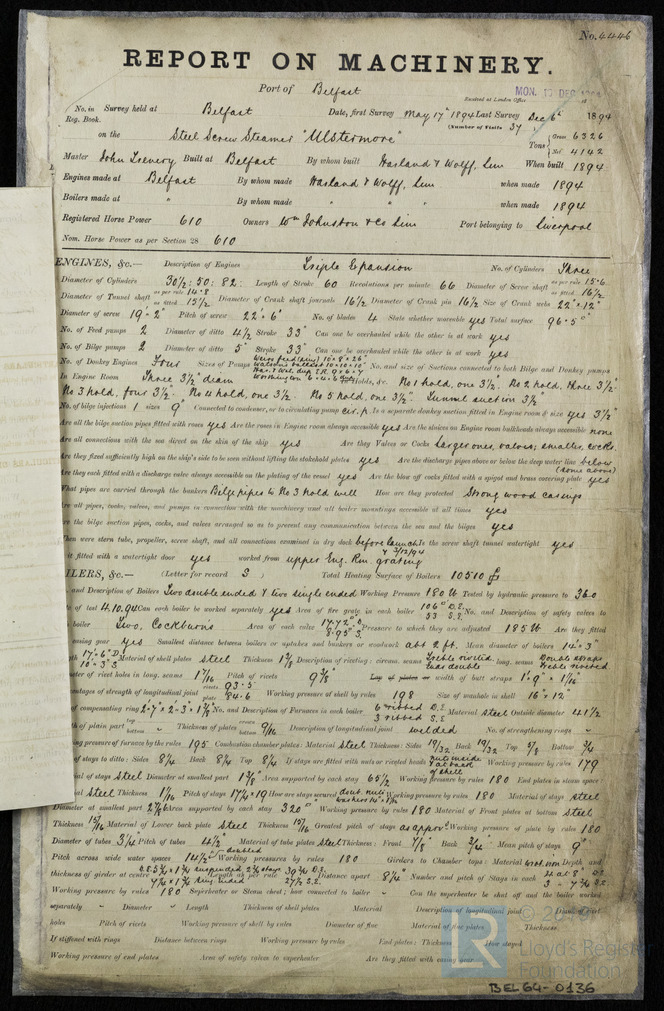 No. 4446
REPORT ON MACHINERY.
Port of Belfast
Received at London Office MON. 10 DEC
No. in Reg. Book. Survey held at Belfast Date, first Survey May 17th 1894 Last Survey Dec 6th 1894
(Number of Visits 37)
on the Steel Screw Steamer "Ulstermore" Tons Gross 6326 Net 4142
Master John Built at Belfast By whom built Harland & Wolff, Lim When built 1894
Engines made at Belfast By whom made Harland & Wolff, Lim when made 1894
Boilers made at " By whom made " " " when made 1894
Registered Horse Power 610 Owners Wm Johnston & Co Lim Port belonging to Liverpool
Nom. Horse Power as per Section 28 610
ENGINES, &c.— Description of Engines Triple Expansion No. of Cylinders Three
Diameter of Cylinders 30½: 50: 82: Length of Stroke 60 Revolutions per minute 66 Diameter of Screw shaft as per rule 15.6 as fitted 16½
Diameter of Tunnel shaft as per rule 14.8 as fitted 15½ Diameter of Crank shaft journals 16½ Diameter of Crank pin 16½ Size of Crank webs 22" × 12"
Diameter of screw 19' 2" Pitch of screw 22' 6" No. of blades 4 State whether moveable yes Total surface 96.5
No. of Feed pumps 2 Diameter of ditto 4½ Stroke 33" Can one be overhauled while the other is at work yes
No. of Bilge pumps 2 Diameter of ditto 5" Stroke 33" Can one be overhauled while the other is at work yes
No. of Donkey Engines Four Sizes of Pumps No. and size of Suctions connected to both Bilge and Donkey pumps
In Engine Room Three 3½" diam Holds, &c. No 1 hold, one 3½. No 2 hold, three 3½"
No 3 hold, four 3½. No 4 hold, one 3½. No 5 hold, one 3½". Tunnel suction 3½"
No. of bilge injections 1 sizes 9" Connected to condenser, or to circulating pump cir. p. Is a separate donkey suction fitted in Engine room & size yes 3½"
Are all the bilge suction pipes fitted with roses yes Are the roses in Engine room always accessible yes Are the sluices on Engine room bulkheads always accessible none
Are all connections with the sea direct on the skin of the ship yes Are they Valves or Cocks Larger ones, valves; smaller, cocks.
Are they fixed sufficiently high on the ship's side to be seen without lifting the stokehold plates yes Are the discharge pipes above or below the deep water line below (some above)
Are they each fitted with a discharge valve always accessible on the plating of the vessel yes Are the blow off cocks fitted with a spigot and brass covering plate yes
What pipes are carried through the bunkers Bilge pipes to No 3 hold well How are they protected Strong wood casings
Are all pipes, cocks, valves, and pumps in connection with the machinery and all boiler mountings accessible at all times yes
Are the bilge suction pipes, cocks, and valves arranged so as to prevent any communication between the sea and the bilges yes
When were stern tube, propeller, screw shaft, and all connections examined in dry dock before launch & 3/12/94 Is the screw shaft tunnel watertight yes
it fitted with a watertight door yes worked from upper Eng. Rm grating
BOILERS, &c.— (Letter for record S) Total Heating Surface of Boilers 10510
and Description of Boilers Two double ended & two single ended Working Pressure 180 lb Tested by hydraulic pressure to 360
of test 4.10.94 Can each boiler be worked separately yes Area of fire grate in each boiler 106 D.E. 53 S.E. No. and Description of safety valves to
boiler Two, Cockburns Area of each valve 8.95 S. Pressure to which they are adjusted 185 lb Are they fitted
easing gear yes Smallest distance between boilers or uptakes and bunkers or woodwork abt 2 ft. Mean diameter of boilers 14' 3"
17' 6" D 10' 3" S Material of shell plates steel Thickness 1⅞ Description of riveting: circum. seams long. seams Double straps treble riveted
of rivet holes in long. seams 1 7/16 Pitch of rivets 9⅞ width of butt straps 1' 9" × 1 1/16"
percentages of strength of longitudinal joint rivets 93.5 plate 84.6 Working pressure of shell by rules 198 Size of manhole in shell 16" × 12"
of compensating ring No. and Description of Furnaces in each boiler 6 ribbed D.E. 3 ribbed S.E. Material steel Outside diameter 41½
of plain part top " bottom Thickness of plates 9/16 Description of longitudinal joint welded No. of strengthening rings "
working pressure of furnace by the rules 195 Combustion chamber plates: Material steel Thickness: Sides 19/32 Back 19/32 Top 5/8 Bottom ¾
of stays to ditto: Sides 8¼ Back 8¼ Top 8¼ If stays are fitted with nuts or riveted heads Working pressure by rules 179
of stays Steel Diameter at smallest part Area supported by each stay 65½ Working pressure by rules 180 End plates in steam space:
Steel Thickness 1 1/16 Pitch of stays 17¼ × 19 How are stays secured Working pressure by rules 180 Material of stays steel
Diameter at smallest part Area supported by each stay 320 Working pressure by rules 180 Material of Front plates at bottom steel
Thickness 15/16 Material of Lower back plate steel Thickness 15/16 Greatest pitch of stays as approv. Working pressure of plate by rules 180
Diameter of tubes 3¼" Pitch of tubes 4½ Material of tube plates steel Thickness: Front 7/8 Back ¾ Mean pitch of stays 9"
Pitch across wide water spaces 14½" Working pressures by rules 180 Girders to Chamber tops: Material Depth and
thickness of girder at centre Length as per rule Distance apart 8¼" Number and pitch of Stays in each
Working pressure by rules 180 Superheater or Steam chest; how connected to boiler Can the superheater be shut off and the boiler worked
separately Diameter Length Thickness of shell plates Material Description of longitudinal joint
holes Pitch of rivets Working pressure of shell by rules Diameter of flue Material of flue plates Thickness
If stiffened with rings Distance between rings Working pressure by rules End plates: Thickness
Working pressure of end plates Area of safety valves to superheater Are they fitted with easing gear
LR
© 2019
Lloyd's Register
Foundation
BEL64-0136